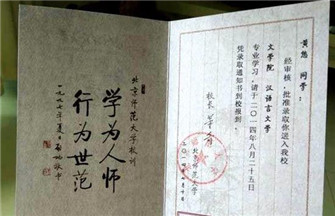 同学：
经审核，批准录取你进入我校
文学院 汉语言文学
专业学习，请于二〇一四年八月二十五日
凭录取通知书到校报到。
校长
北京师范大学
北京师范大学校训
学为人师
行为世范
一九九七年夏日 启功敬书